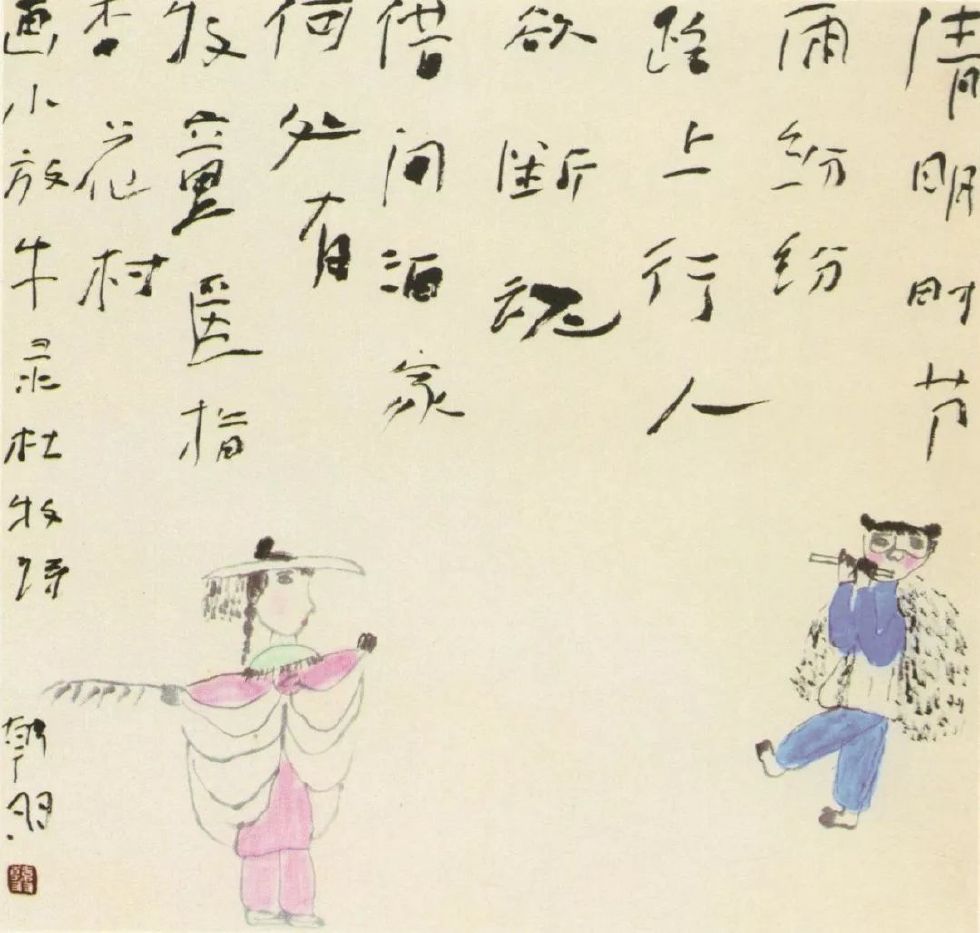 清明时节
雨纷纷
路上行人
欲断魂
借问酒家
何处有
牧童遥指
杏花村
画小放牛录杜牧诗
韩羽